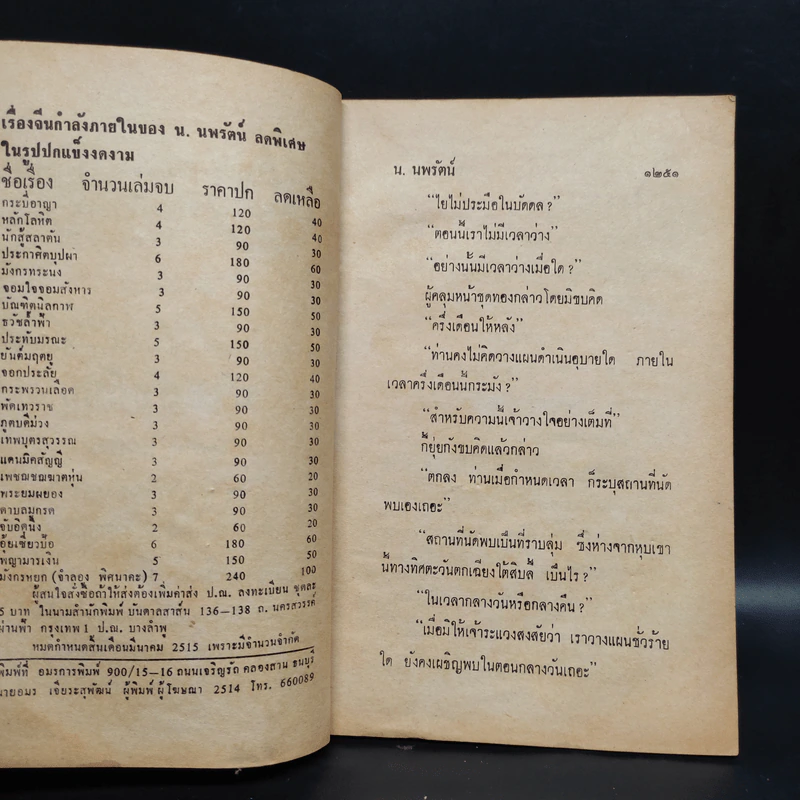 เรื่องจีนกำลังภายในของ น. นพรัตน์ ลดพิเศษ
ในรูปปกแข็งงดงาม
ชื่อเรื่อง จำนวนเล่มจบ ราคาปก ลดเหลือ
กระบี่อาญา 4 120 40
หลักโลหิต 4 120 40
นักสู้สลาตัน 3 90 30
ประกาศิตบุปผา 6 180 60
มังกรทระนง 3 90 30
จอมใจจอมสังหาร 3 90 30
บัณฑิตนิลกาฬ 5 150 50
ธวัชล้ำฟ้า 3 90 30
ประทับมรณะ 5 150 50
ยันต์มฤตยู 3 90 30
จอกประลัย 4 120 40
กระพรวนเลือด 3 90 30
พัดเทวราช 3 90 30
ภูตบดีม่วง 3 90 30
เทพบุตรสุวรรณ 3 90 30
แดนมิคสัญญี 3 90 30
เพชฌฆาตหุ่น 2 60 20
พระยมผยอง 3 90 30
ดาบมฤกรด 3 90 30
จับอิดนึ้ง 2 60 20
อุ้ยเซี่ยวป้อ 6 180 60
พญามารเงิน 5 150 50
มังกรหยก (จำลอง พิศนาคะ) 7 240 100
ผู้สนใจสั่งซื้อถ้าให้ส่งต้องเพิ่มค่าส่ง ป.ณ. ลงทะเบียน ชุดละ
5 บาท ในนามสำนักพิมพ์ บันดาลสาส์น 136–138 ถ. นครสวรรค์
ผ่านฟ้า กรุงเทพ 1 ป.ณ. บางลำพู
หมดกำหนดสิ้นเดือนมีนาคม 2515 เพราะมีจำนวนจำกัด
พิมพ์ที่ อมรการพิมพ์ 900/15–16 ถนนเจริญรัถ คลองสาน ธนบุรี
นายอมร เจียระสุพัฒน์ ผู้พิมพ์ผู้โฆษณา 2514 โทร. 660089
น. นพรัตน์ ๑๒๕๑
“ไยไม่ประมือในบัดดล ?”
“ตอนนี้เราไม่มีเวลาว่าง”
“อย่างนั้นมีเวลาว่างเมื่อใด ?”
ผู้คลุมหน้าชุดทองกล่าวโดยมิขบคิด
“ครึ่งเดือนให้หลัง”
“ท่านคงไม่คิดวางแผนดำเนินอุบายใด ภายใน
เวลาครึ่งเดือนนี้กระมัง ?”
“สำหรับความนี้เจ้าวางใจอย่างเต็มที่”
กี้ยุ่ยกังขบคิดแล้วกล่าว
“ตกลง ท่านเมื่อกำหนดเวลา ก็ระบุสถานที่นัด
พบเองเถอะ”
“สถานที่นัดพบเป็นที่ราบลุ่ม ซึ่งห่างจากหุบเขา
นี้ทางทิศตะวันตกเฉียงใต้สิบลี้ เป็นไร ?”
“ในเวลากลางวันหรือกลางคืน ?”
“เมื่อมิให้เจ้าระแวงสงสัยว่า เราวางแผนชั่วร้าย
ใด ยังคงเผชิญพบในตอนกลางวันเถอะ”